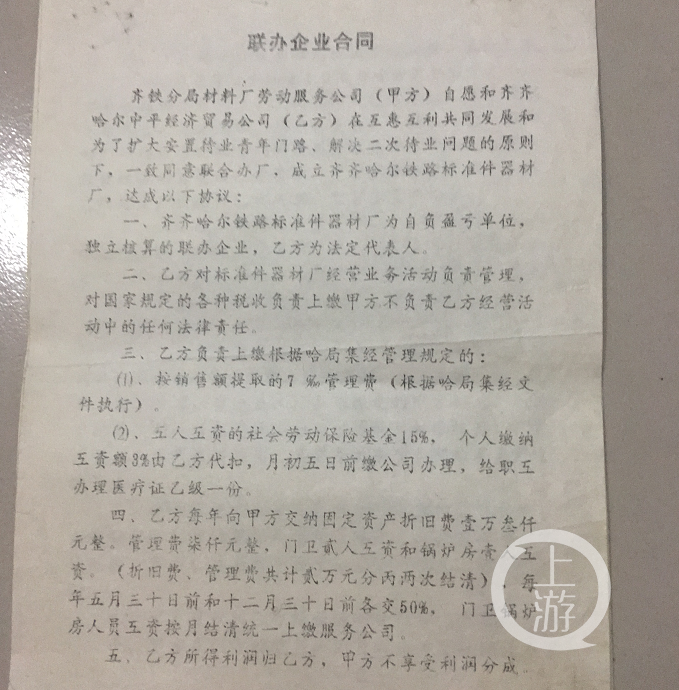 联办企业合同
齐铁分局材料厂劳动服务公司（甲方）自愿和齐齐
哈尔中平经济贸易公司（乙方）在互惠互利共同发展和
为了扩大安置待业青年门路、解决二次待业问题的原则
下，一致同意联合办厂，成立齐齐哈尔铁路标准件器材
厂，达成以下协议：
一、齐齐哈尔铁路标准件器材厂为自负盈亏单位，
独立核算的联办企业，乙方为法定代表人。
二、乙方对标准件器材厂经营业务活动负责管理，
对国家规定的各种税收负责上缴甲方不负责乙方经营活
动中的任何法律责任。
三、乙方负责上缴根据哈局集经管理规定的：
⑴、按销售额提取的7‰管理费（根据哈局集经文
件执行）。
⑵、工人工资的社会劳动保险基金15%，个人缴纳
工资额3%由乙方代扣，月初五日前缴公司办理，给职工
办理医疗证乙级一份。
四、乙方每年向甲方交纳固定资产折旧费壹万叁仟
元整。管理费柒仟元整，门卫贰人工资和锅炉房壹人工
资。（折旧费、管理费共计贰万元分丙两次结清），每
年五月三十日前和十二月三十日前各交50%，门卫锅炉
房人员工资按月结清统一上缴服务公司。
五、乙方所得利润归乙方，甲方不享受利润分成。
上游